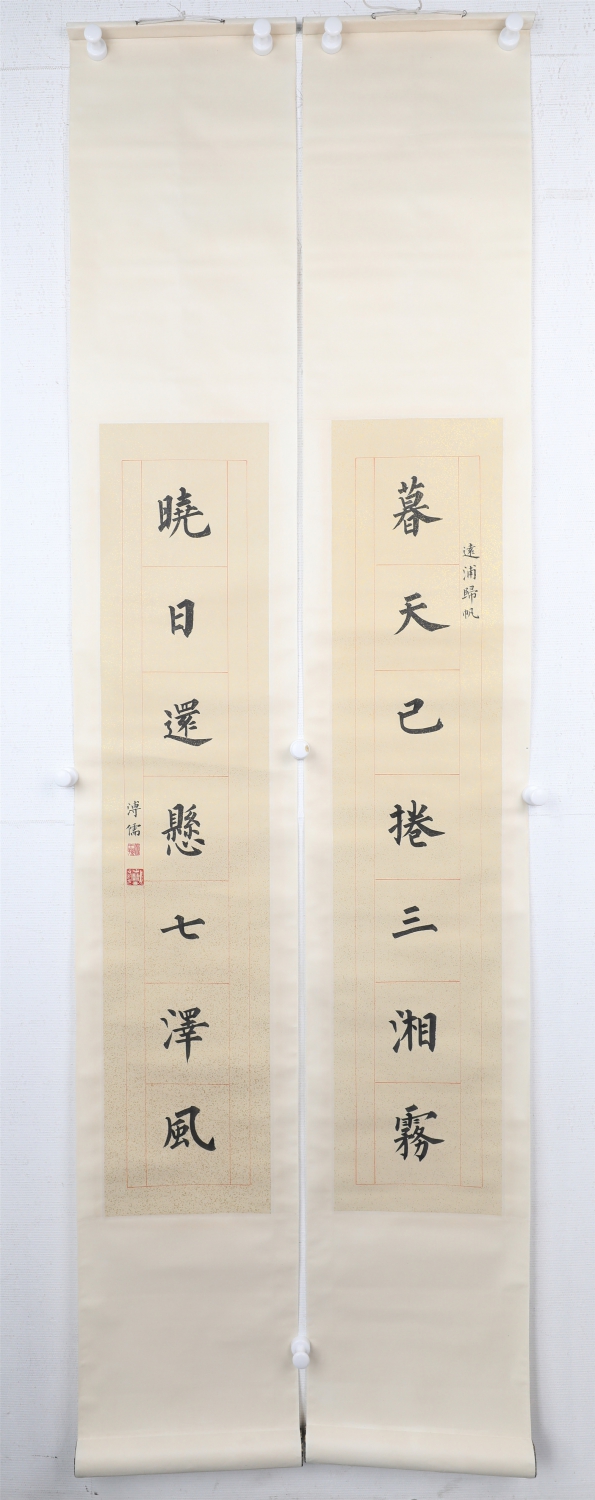 遠浦歸帆
暮天已捲三湘霧
曉日還懸七澤風
溥儒